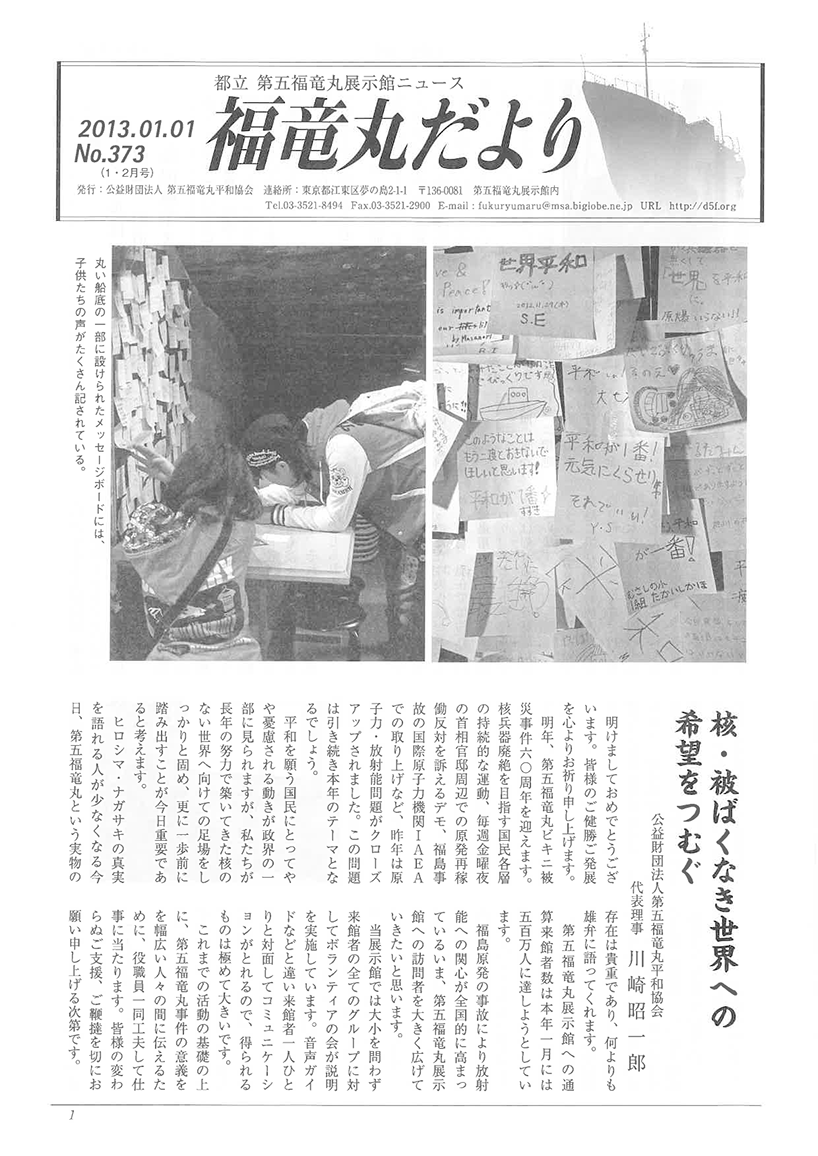 都立 第五福竜丸展示館ニュース
福竜丸だより
2013.01.01
No.373
(1・2月号)
発行：公益財団法人 第五福竜丸平和協会　連絡所：東京都江東区夢の島2-1-1　〒136-0081　第五福竜丸展示館内
Tel.03-3521-8494　Fax.03-3521-2900　E-mail : fukuryumaru@msa.biglobe.ne.jp　URL　http://d5f.org
丸い船底の一部に設けられたメッセージボードには、
子供たちの声がたくさん記されている。
Peace!
is important
世界平和
2012.11.29(木)
S.E
「世界
原爆いらない!!
このようなことは
もう二度とおきないで
ほしいと思います!
平和が1番
すずき
平和が1番!
元気にくらせり
それでいい!
Y.S
が一番!
むさしの小
1組 たかいしかほ
核・被ばくなき世界への
希望をつむぐ
公益財団法人第五福竜丸平和協会
代表理事　川崎昭一郎
明けましておめでとうござ
います。皆様のご健勝ご発展
を心よりお祈り申し上げます。
明年、第五福竜丸ビキニ被
災事件六〇周年を迎えます。
核兵器廃絶を目指す国民各層
の持続的な運動、毎週金曜夜
の首相官邸周辺での原発再稼
働反対を訴えるデモ、福島事
故の国際原子力機関IAEA
での取り上げなど、昨年は原
子力・放射能問題がクローズ
アップされました。この問題
は引き続き本年のテーマとな
るでしょう。
平和を願う国民にとってや
や憂慮される動きが政界の一
部に見られますが、私たちが
長年の努力で築いてきた核の
ない世界へ向けての足場をし
っかりと固め、更に一歩前に
踏み出すことが今日重要であ
ると考えます。
ヒロシマ・ナガサキの真実
を語れる人が少なくなる今
日、第五福竜丸という実物の
存在は貴重であり、何よりも
雄弁に語ってくれます。
第五福竜丸展示館への通
算来館者数は本年一月には
五百万人に達しようとしてい
ます。
福島原発の事故により放射
能への関心が全国的に高まっ
ているいま、第五福竜丸展示
館への訪問者を大きく広げて
いきたいと思います。
当展示館では大小を問わず
来館者の全てのグループに対
してボランティアの会が説明
を実施しています。音声ガイ
ドなどと違い来館者一人ひと
りと対面してコミュニケーシ
ョンがとれるので、得られる
ものは極めて大きいです。
これまでの活動の基礎の上
に、第五福竜丸事件の意義を
を幅広い人々の間に伝えるた
めに、役職員一同工夫して仕
事に当たります。皆様の変わ
らぬご支援、ご鞭撻を切にお
願い申し上げる次第です。
1